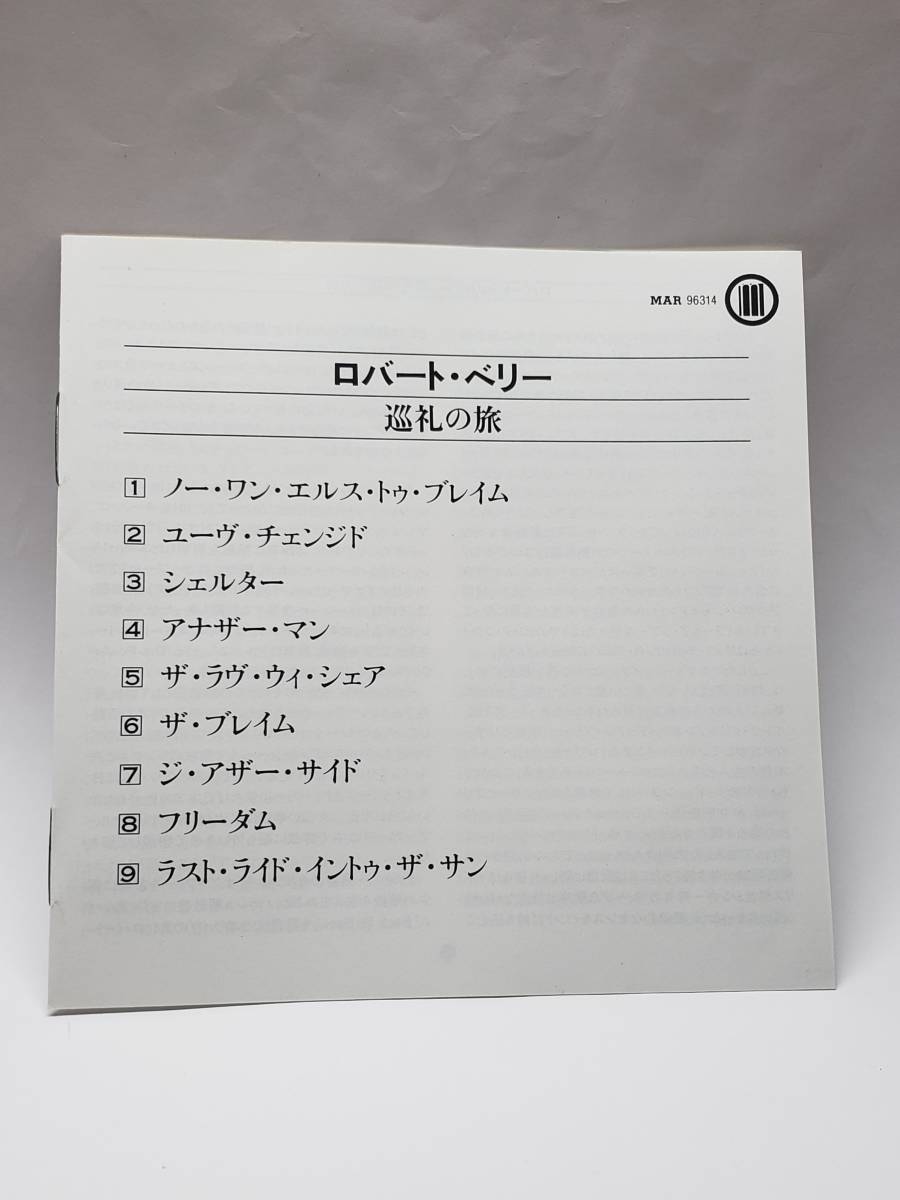 MAR 96314
ロバート・ベリー
巡礼の旅
1 ノー・ワン・エルス・トゥ・ブレイム
2 ユーヴ・チェンジド
3 シェルター
4 アナザー・マン
5 ザ・ラヴ・ウィ・シェア
6 ザ・ブレイム
7 ジ・アザー・サイド
8 フリーダム
9 ラスト・ライド・イントゥ・ザ・サン